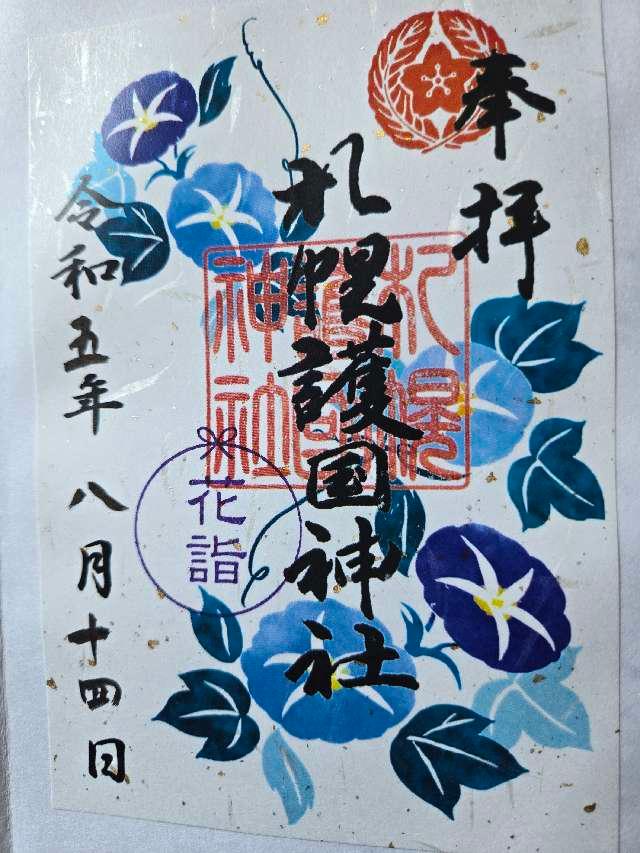 奉拝
札幌護国神社
札幌護国神社
花詣
令和五年 八月十四日